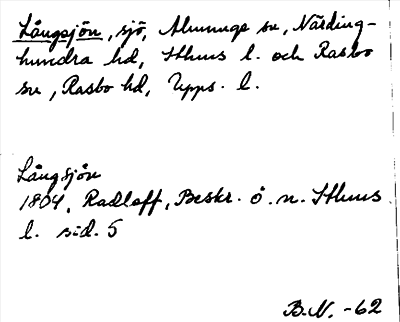 Långsjön, sjö, Almunge sn, Närding-
hundra hd, Sthms l. och Rasbo
sn, Rasbo hd, Upps. l.
Långsjön
1804, Radloff, Beskr. ö. n. Sthms
l. sid. 5
B.N. -62